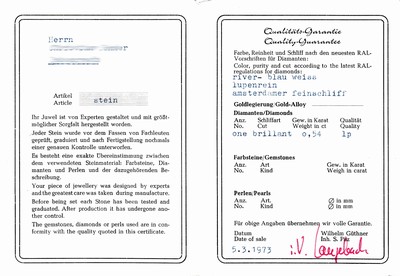 Herrn
Artikel
Article stein
Ihr Juwel ist von Experten gestaltet und mit größt-
möglicher Sorgfalt hergestellt worden.
Jeder Stein wurde vor dem Fassen von Fachleuten
geprüft, graduiert und nach Fertigstellung nochmals
einer genauen Kontrolle unterworfen.
Es besteht eine exakte Übereinstimmung zwischen
dem verwendeten Steinmaterial: Farbsteine, Dia-
manten und Perlen und der dazugehörenden Be-
schreibung.
Your piece of jewellery was designed by experts
and the greatest care was taken during manufacture.
Before being set each Stone has been tested and
graduated. After production it has undergone ano-
ther control.
The gemstones, diamonds or perls used are in con-
formity with the quality quoted in this certificate.
Qualitäts-Garantie
Quality-Guarantee
Farbe, Reinheit und Schliff nach den neuesten RAL-
Vorschriften für Diamanten:
Color, purity and cut according to the latest RAL-
regulations for diamonds:
river- blau weiss
lupenrein
amsterdamer feinschliff
Goldlegierung/Gold-Alloy
Diamanten/Diamonds
Anz. Schliffart Gew. in Karat Qualität
No. Cut Weight in ct Quality
one brillant 0,54 lp
Farbsteine/Gemstones
Anz. Art Gew. in Karat
No. Kind Weigh in carat
Perlen/Pearls
Anz. Art Ø in mm
No. Kind Ø in mm
Für obige Angaben übernehmen wir volle Garantie.
Datum Wilhelm Güthaer
Date of sale Inh. S. Fitz
5.3.1973 i.V.